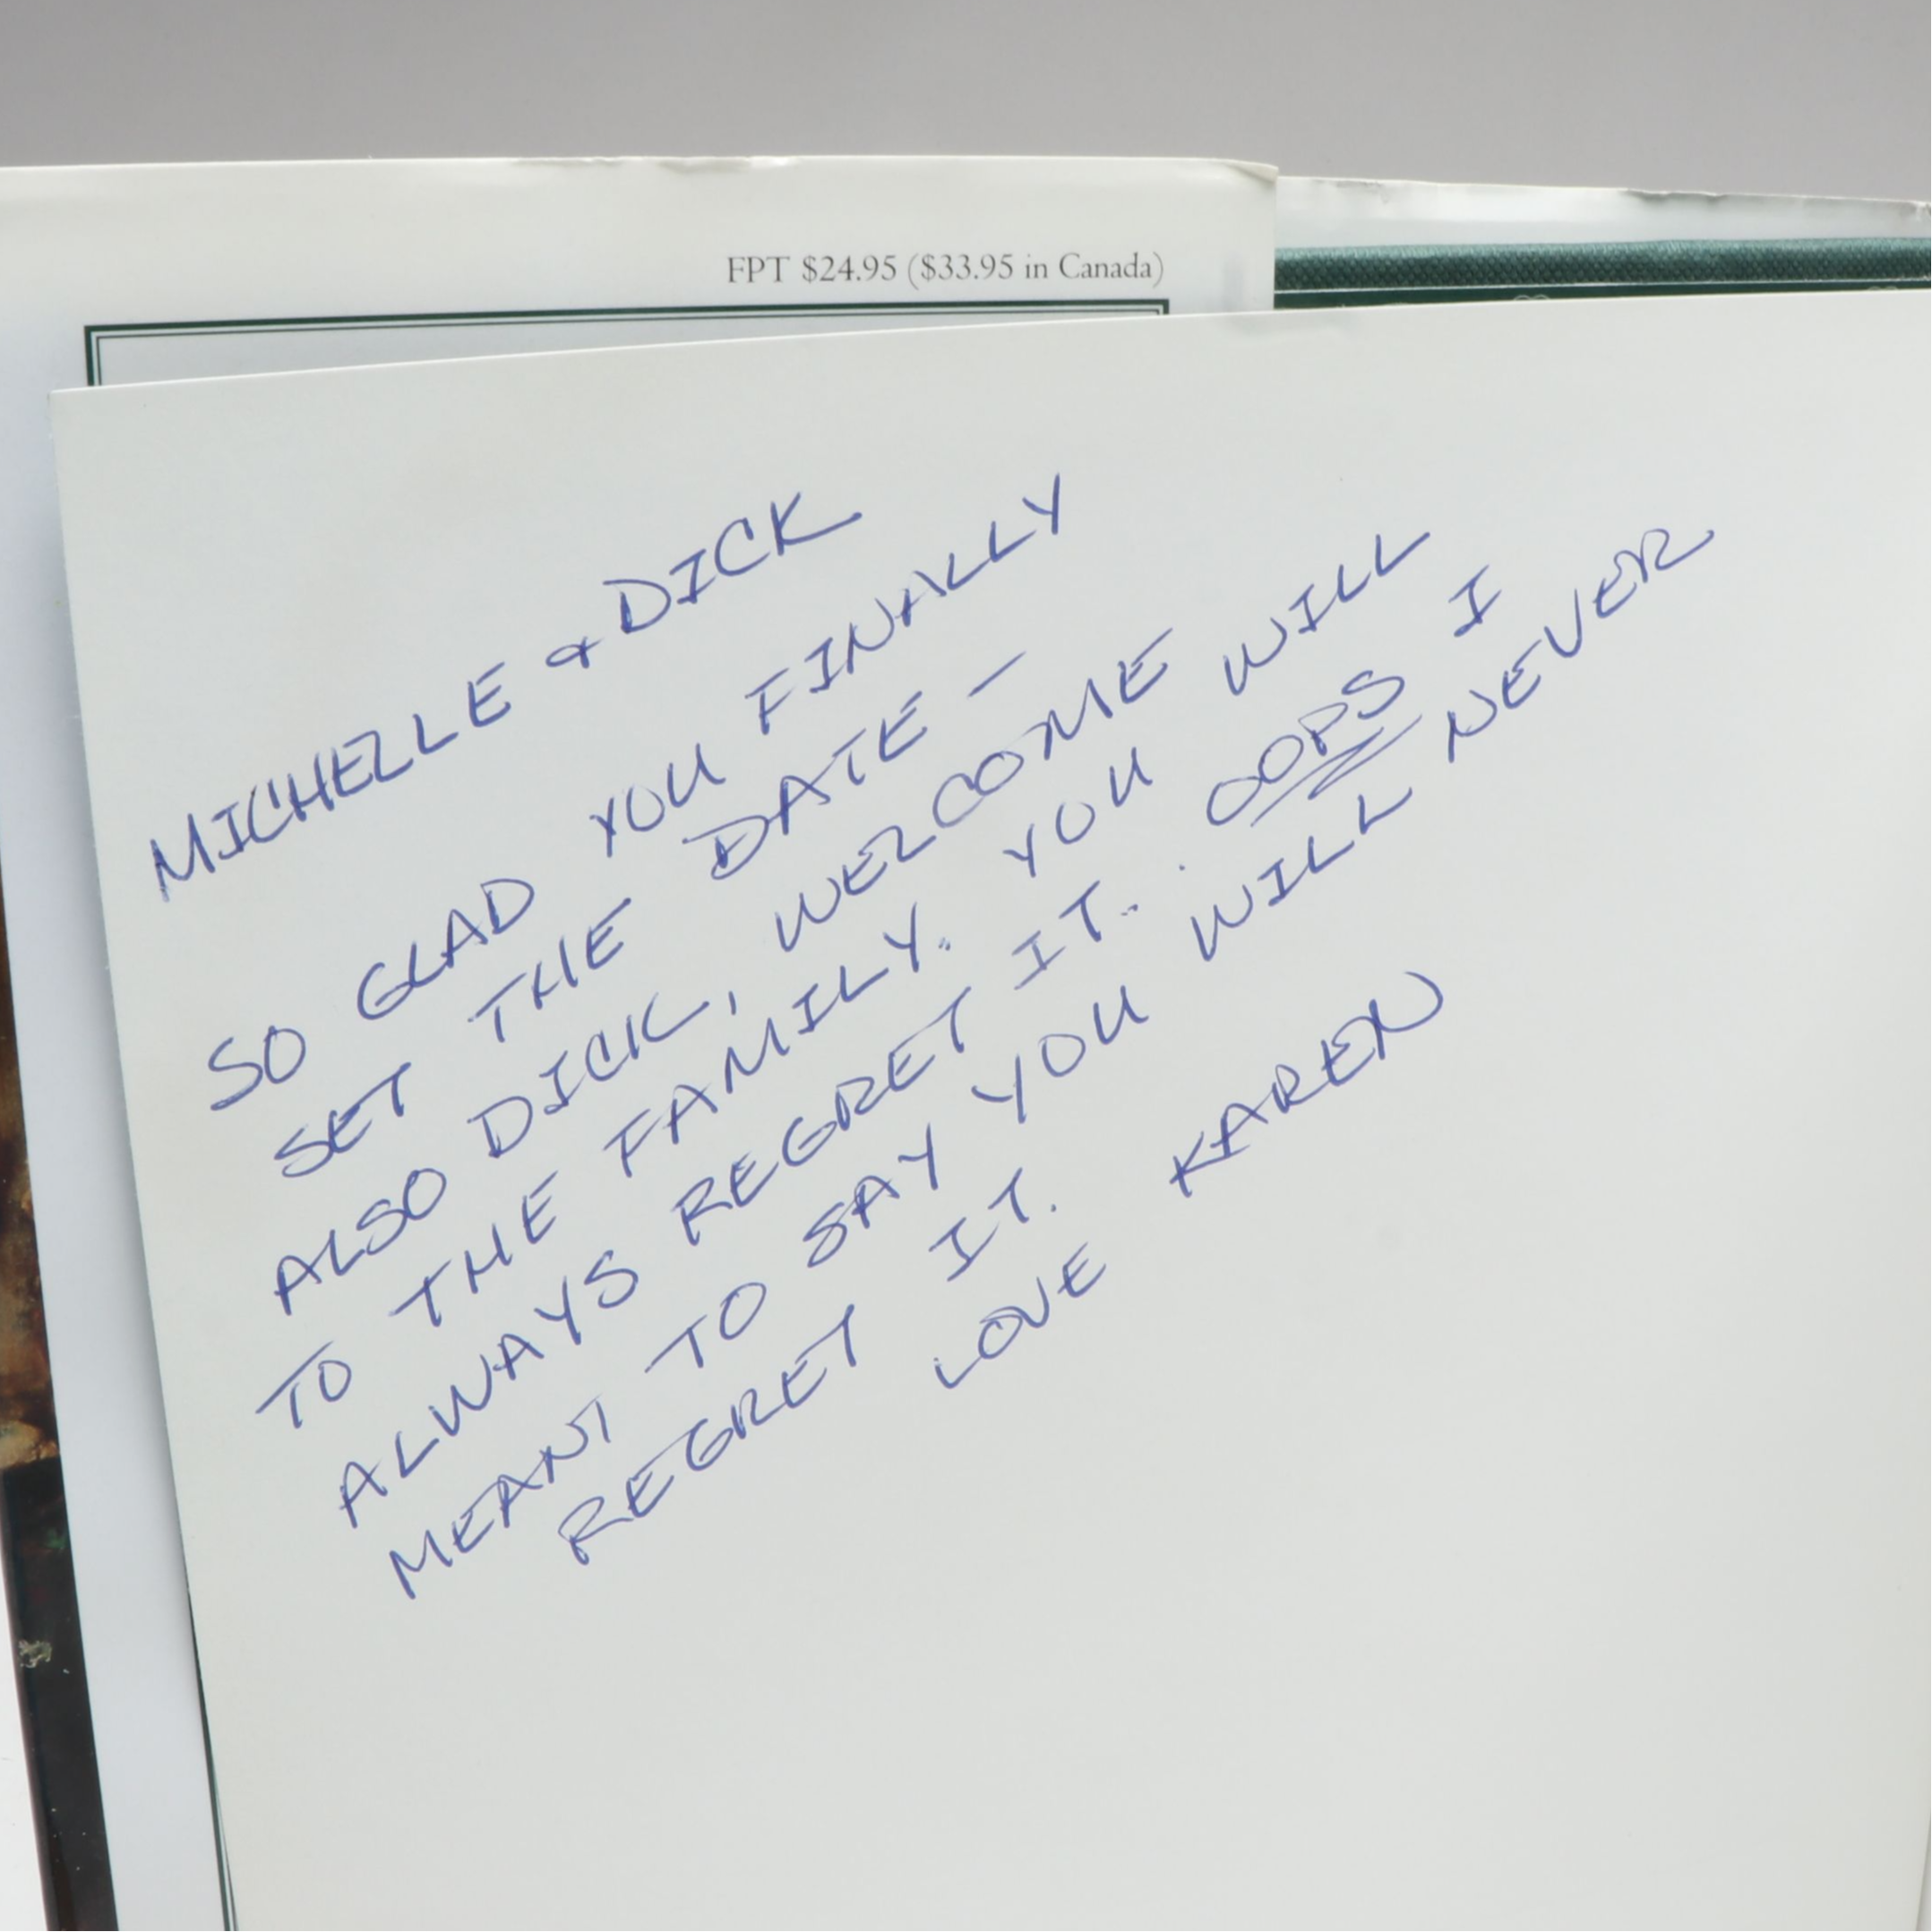 FPT $24.95 ($33.95 in Canada)
MICHELLE & DICK
SO GLAD YOU FINALLY
SET THE DATE -
ALSO DICK, WELCOME
TO THE FAMILY. YOU WILL
ALWAYS REGRET IT... OOPS I
MEANT TO SAY YOU WILL NEVER
REGRET IT.
LOVE KAREN